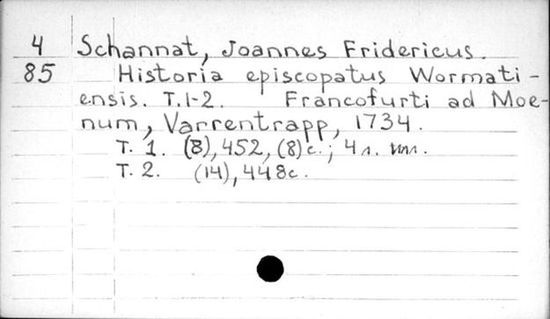 4 Schannat, Joannes Fridericus.
85 Historia episcopatus Wormati-
ensis. T.1-2. Francofurti ad Moe-
num, Varrentrapp, 1734.
T. 1. (8), 452, (8) c.; 4 л. илл.
T. 2. (14), 448 c.